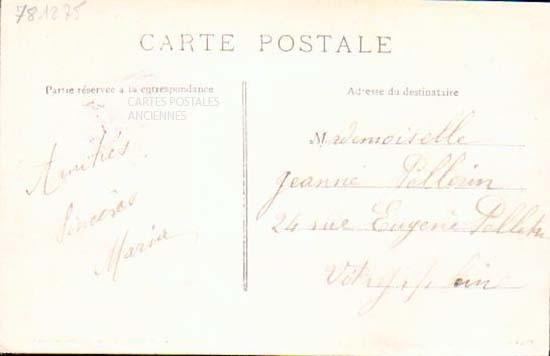 781275
CARTE POSTALE
Partie réservée à la correspondance
CARTES POSTALES
ANCIENNES
Amitiés
Sincères
Maria
Adresse du destinataire
Mademoiselle
Jeanne Pellerin
24 rue Eugène Pelletan
Vitry s/ Seine